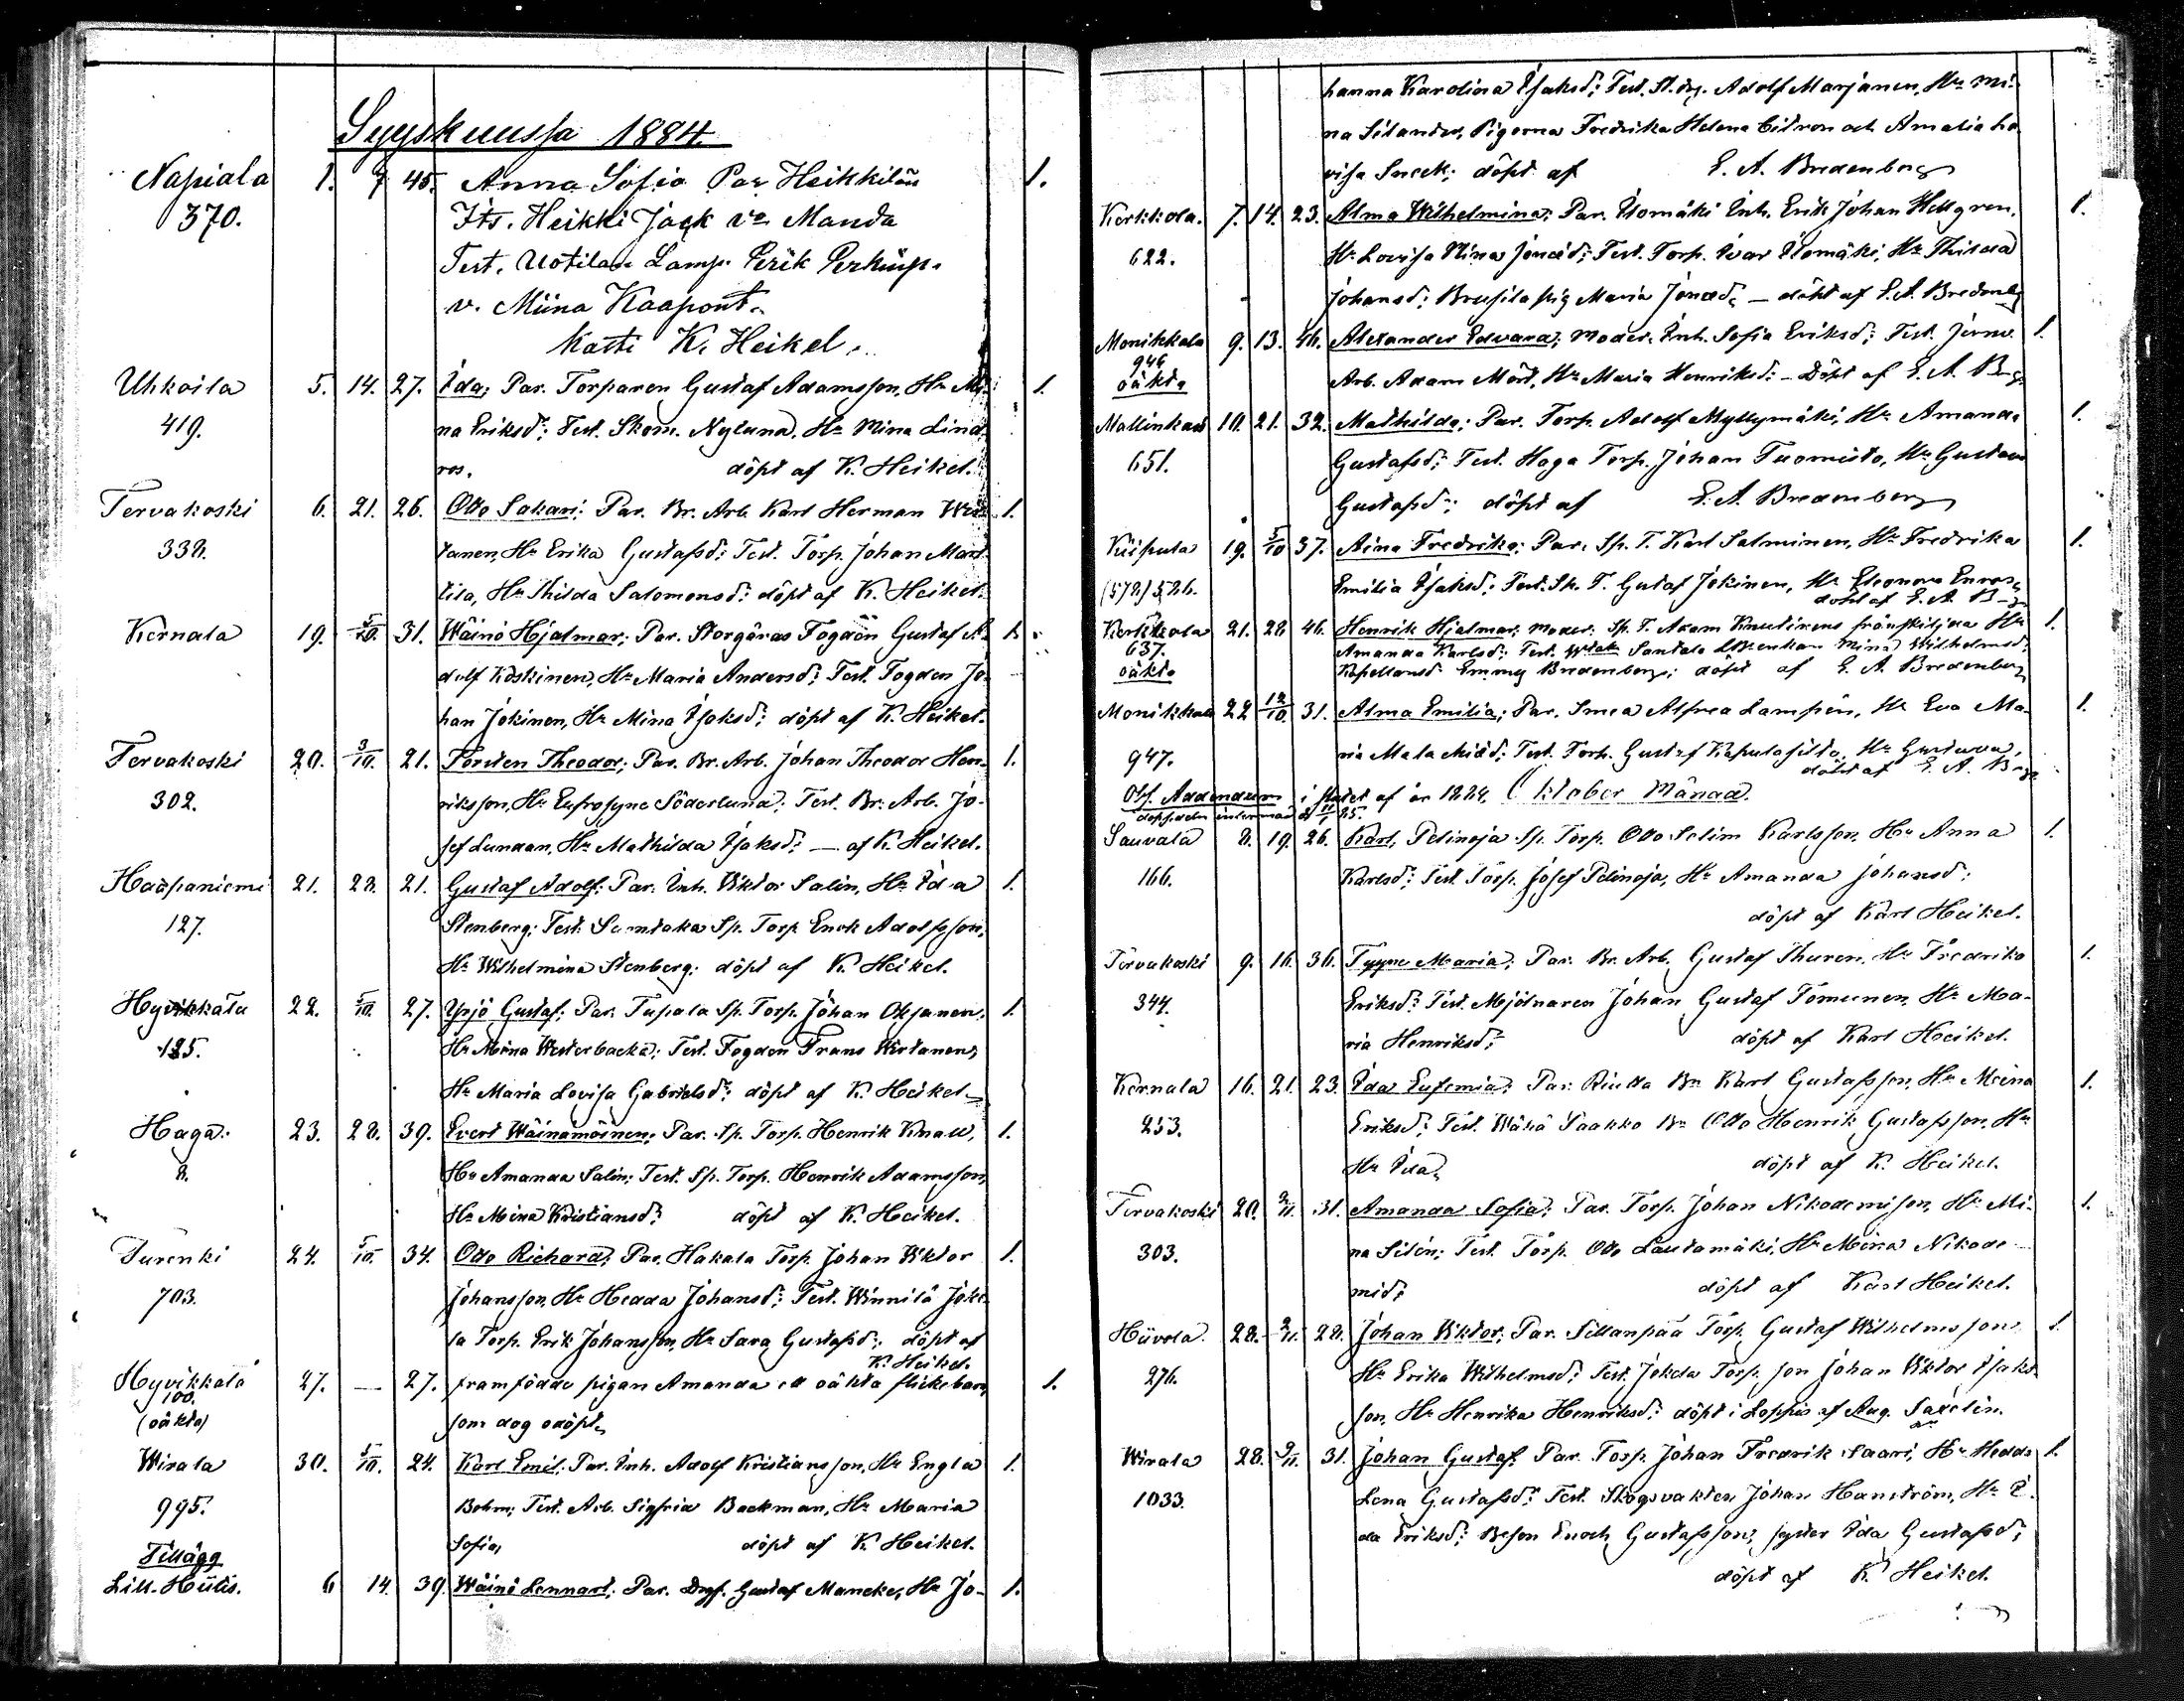 Syyskuussa 1884.
Napiala 1. 7 45. Anna Sofia Par Heikkilän 1.
370. Its. Heikki Jaak v:o Manda
Test. Uotilan Lamp. Erik
v. Miina Kaapont.
Kasti K. Heikel.
Uhkoila 5. 14. 27. Ida; Par. Torparen Gustaf Adamsson, Hu Mi- 1.
419. na Eriksd:; Test. Skom. Nylund, Hu Mina Lind
ros. döpt af K. Heikel.
Tervakoski 6. 21. 26. Otto Sakari; Par. Br. Arb. Karl Herman 1.
338. tanen, Hu Erika Gustafsd: Test. Torp. Johan Mart
tila, Hu Thilda Salomonsd: döpt af K. Heikel.
Kernala 19. 5/10. 31. Wäinö Hjalmar; Par. Storgårds Fogdön Gustaf A- 1.
dolf Koskinen, Hu Maria Andersd: Test. Fogden Jo-
han Jokinen, Hu Mina Isaksd: döpt af K. Heikel.
Tervakoski 20. 3/10. 21. Torsten Theodor; Par. Br. Arb. Johan Theodor Hen- 1.
302. riksson, Hu Eufrosyne Söderlund; Test. Br. Arb. Jo-
sef Lundan, Hu Mathilda Isaksd: — af K. Heikel.
Haapaniemi 21. 28. 21. Gustaf Adolf; Par. Inh. Viktor Salin, Hu Ida 1.
127. Stenberg; Test. Sp. Torp. Enok Adolfsson,
Hu Wilhelmina Stenberg; döpt af K. Heikel.
Hyvikkälä 22. 5/10. 27. Yrjö Gustaf; Par. Tupala Sp. Torp. Johan Oksanen, 1.
125. Hu Mina Westerbacka; Test. Fogden Frans Wirtanen,
Hu Maria Lovisa Gabrielsd: döpt af K. Heikel
Haga. 23. 28. 39. Evert Wäinämöinen; Par. Sp. Torp. Henrik Knall, 1.
8. Hu Amanda Salin; Test. Sp. Torp. Henrik Adamsson,
Hu Mina Kristiansd: döpt af K. Heikel.
Turenki 24. 5/10. 34. Otto Richard; Par. Hakala Torp. Johan Viktor 1.
703. Johansson, Hu Hedda Johansd: Test. Winnilä Joke
la Torp. Erik Johansson, Hu Sara Gustafsd:; döpt af
K. Heikel.
Hyvikkälä 27. — 27. framfödde pigan Amanda ett oäkta flickebarn, 1.
100.
(oäkta) som dog odöpt.
Wirala 30. 5/10. 24. Karl Emil; Par. Inh. Adolf Kristiansson, Hu Engla 1.
995. Bohm; Test. Arb. Sigfrid Backman, Hu Maria
Sofia, döpt af K. Heikel.
Tillägg
Lill. Hiitis. 6 14. 39. Wäinö Lennart; Par. Gustaf Mancke, Hu Jo- 1.
hanna Karolina Isaksd: Test. Adolf Marjanen, Hu Mi-
na Silander, Pigorna Fredrika Helena Citron och Amalia Lo
visa Sneck; döpt af E. A. Bredenberg
Kerkkola. 7. 14. 23. Alma Wilhelmina; Par. Ulomäki Inh. Erik Johan Hellgren, 1.
622. Hu Lovisa Mina Jonæd: Test. Torp. Ivar Ulomäki, Hu Thilda
Johansd: pig Maria Jonæd. — döpt af E. A. Bredenbg
Monikkala 9. 13. 46. Alexander Edvard; Moder: Inh. Sofia Eriksd: Test. 1.
946
oäkta Arb. Adam Mört, Hu Maria Henriksd: — Döpt af E. A. Bg.
Mallinkais 10. 21. 32. Mathilda; Par. Torp. Adolf Myllymäki, Hu Amanda 1.
651. Gustafsd: Test. Haga Torp. Johan Tuomisto, Hu Gustava
Gustafsd: döpt af E. A. Bredenberg
Kiipula 19. 5/10 37. Aina Fredrika; Par. Sp. T. Karl Salminen, Hu Fredrika 1.
(572) 526. Emilia Isaksd: Test. Sp. T. Gustaf Jokinen, Hu Eleonora
döpt af E. A. B-g.
Kerkkola 21. 28 46. Henrik Hjalmar; Moder: Sp. T. Adam Knutinens frånskiljda Hu 1.
637. Amanda Karlsd: Test. Santala Enkan Mina Wilhelmsd:
oäkta Kapellansd: Emmy Bredenberg; döpt af E. A. Bredenberg
Monikkala 22 12/10. 31. Alma Emilia; Par. Smed Alfred Lampén, Hu Eva Ma- 1.
947. ria Malakiasd: Test. Torp. Gustaf Hu Gustava,
döpt af E. A. B-g.
Obs. Addendum i slutet af år 1884. Oktober Månad.
Sauvala 8. 19. 26. Karl, Pelinoja Sp. Torp. Otto Selim Karlsson, Hu Anna 1.
166. Karlsd: Test. Torp. Josef Pelinoja, Hu Amanda Johansd:
döpt af Karl Heikel.
Tervakoski 9. 16. 36. Tyyne Maria; Par. Br. Arb. Gustaf Thuren, Hu Fredrika 1.
344. Eriksd: Test. Mjölnaren Johan Gustaf Tomunen, Hu Ma-
ria Henriksd: döpt af Karl Heikel.
Kernala 16. 21. 23. Ida Eufemia; Par. Riutta Bn Karl Gustafsson, Hu Meina 1.
253. Eriksd: Test. Wähä Paakko Bn Otto Henrik Gustafsson, Hu
Hu Ida, döpt af K. Heikel.
Tervakoski 20. 2/11. 31. Amanda Sofia; Par. Torp. Johan Nikodemisson, Hu Mi- 1.
303. na Silén; Test. Torp. Otto Lautamäki, Hu Mina Nikode-
misd: döpt af Karl Heikel.
Hiivola 28. 2/11. 28. Johan Viktor; Par. Sillanpää Torp. Gustaf Wilhelmsson 1.
276. Hu Erika Wilhelmsd: Test. Jokela Torp. son Johan Viktor Isaks
son, Hu Henrika Henriksd: döpt i Loppis af Aug. Saxelin.
Wirala 28. 9/11. 31. Johan Gustaf; Par. Torp. Johan Fredrik Saari, Hu Hedda 1.
1033. Lena Gustafsd: Test. Skogsvakten Johan Hamström, Hu I-
da Eriksd: Beson Enoch Gustafsson, syster Ida Gustafsd:
döpt af K. Heikel.